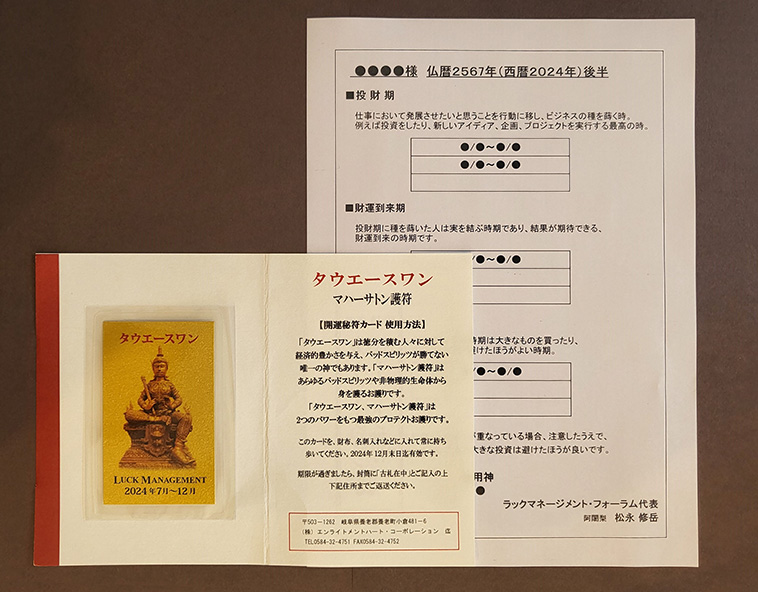 ●●●●様 仏暦2567年(西暦2024年)後半
■投財期
仕事において発展させたいと思うことを行動に移し、ビジネスの種を蒔く時。
例えば投資をしたり、新しいアイディア、企画、プロジェクトを実行する最高の時。
●/●~●/●
●/●~●/●
■財運到来期
投財期に種を蒔いた人は実を結ぶ時期であり、結果が期待できる、
財運到来の時期です。
/●~●/●
時期は大きなものを買ったり、
けたほうがよい時期。
/●~●/●
が重なっている場合、注意したうえで、
大きな投資は避けたほうが良いです。
用神
●
ラックマネージメント・フォーラム代表
阿闍梨 松永 修岳
タウエースワン
LUCK MANAGEMENT
2024年7月~12月
タウエースワン
マハーサトン護符
【開運秘符カード 使用方法】
「タウエースワン」は徳分を積む人々に対して
経済的豊かさを与え、バッドスピリッツが勝てない
唯一の神でもあります。「マハーサトン護符」は
あらゆるバッドスピリッツや非物理的生命体から
身を護るお護りです。
「タウエースワン、マハーサトン護符」は
2つのパワーをもつ最強のプロテクトお護りです。
このカードを、財布、名刺入れなどに入れて常に持ち
歩いてください。2024年12月末日迄有効です。
期限が過ぎましたら、封筒に「古札在中」とご記入の上
下記住所までご返送ください。
〒503-1262 岐阜県養老郡養老町小倉481-6
(株)エンライトメントハート・コーポレーション 迄
TEL0584-32-4751 FAX0584-32-4752